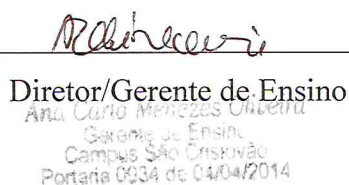 Diretor/Gerente de Ensino
Ana Carla Menezes Oliveira
Gerente de Ensino
Campus São Cristóvão
Portaria 0934 de 04/04/2014